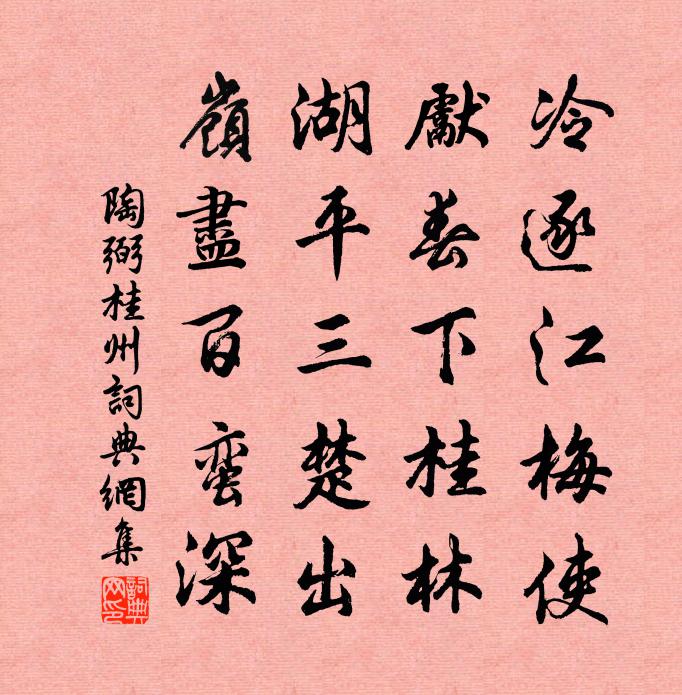 冷逐江梅使
獻春下桂林
湖平三楚出
嶺盡百蛮深
陶弼桂州詞典網集
詞典网印